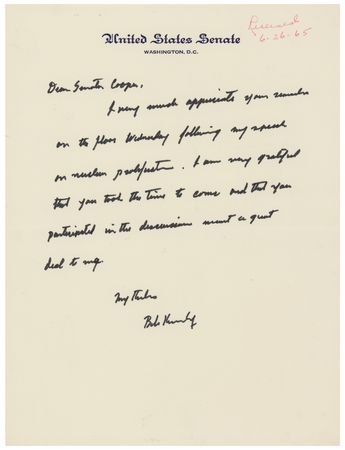 United States Senate
WASHINGTON, D.C.
Received
6-26-65
Dear Senator Cooper,
I very much appreciate your remarks
on the floor Wednesday following my speech
on nuclear proliferation. I am very grateful
that you took the time to come and that you
participated in the discussions meant a great
deal to me.
My thanks
Bob Kennedy